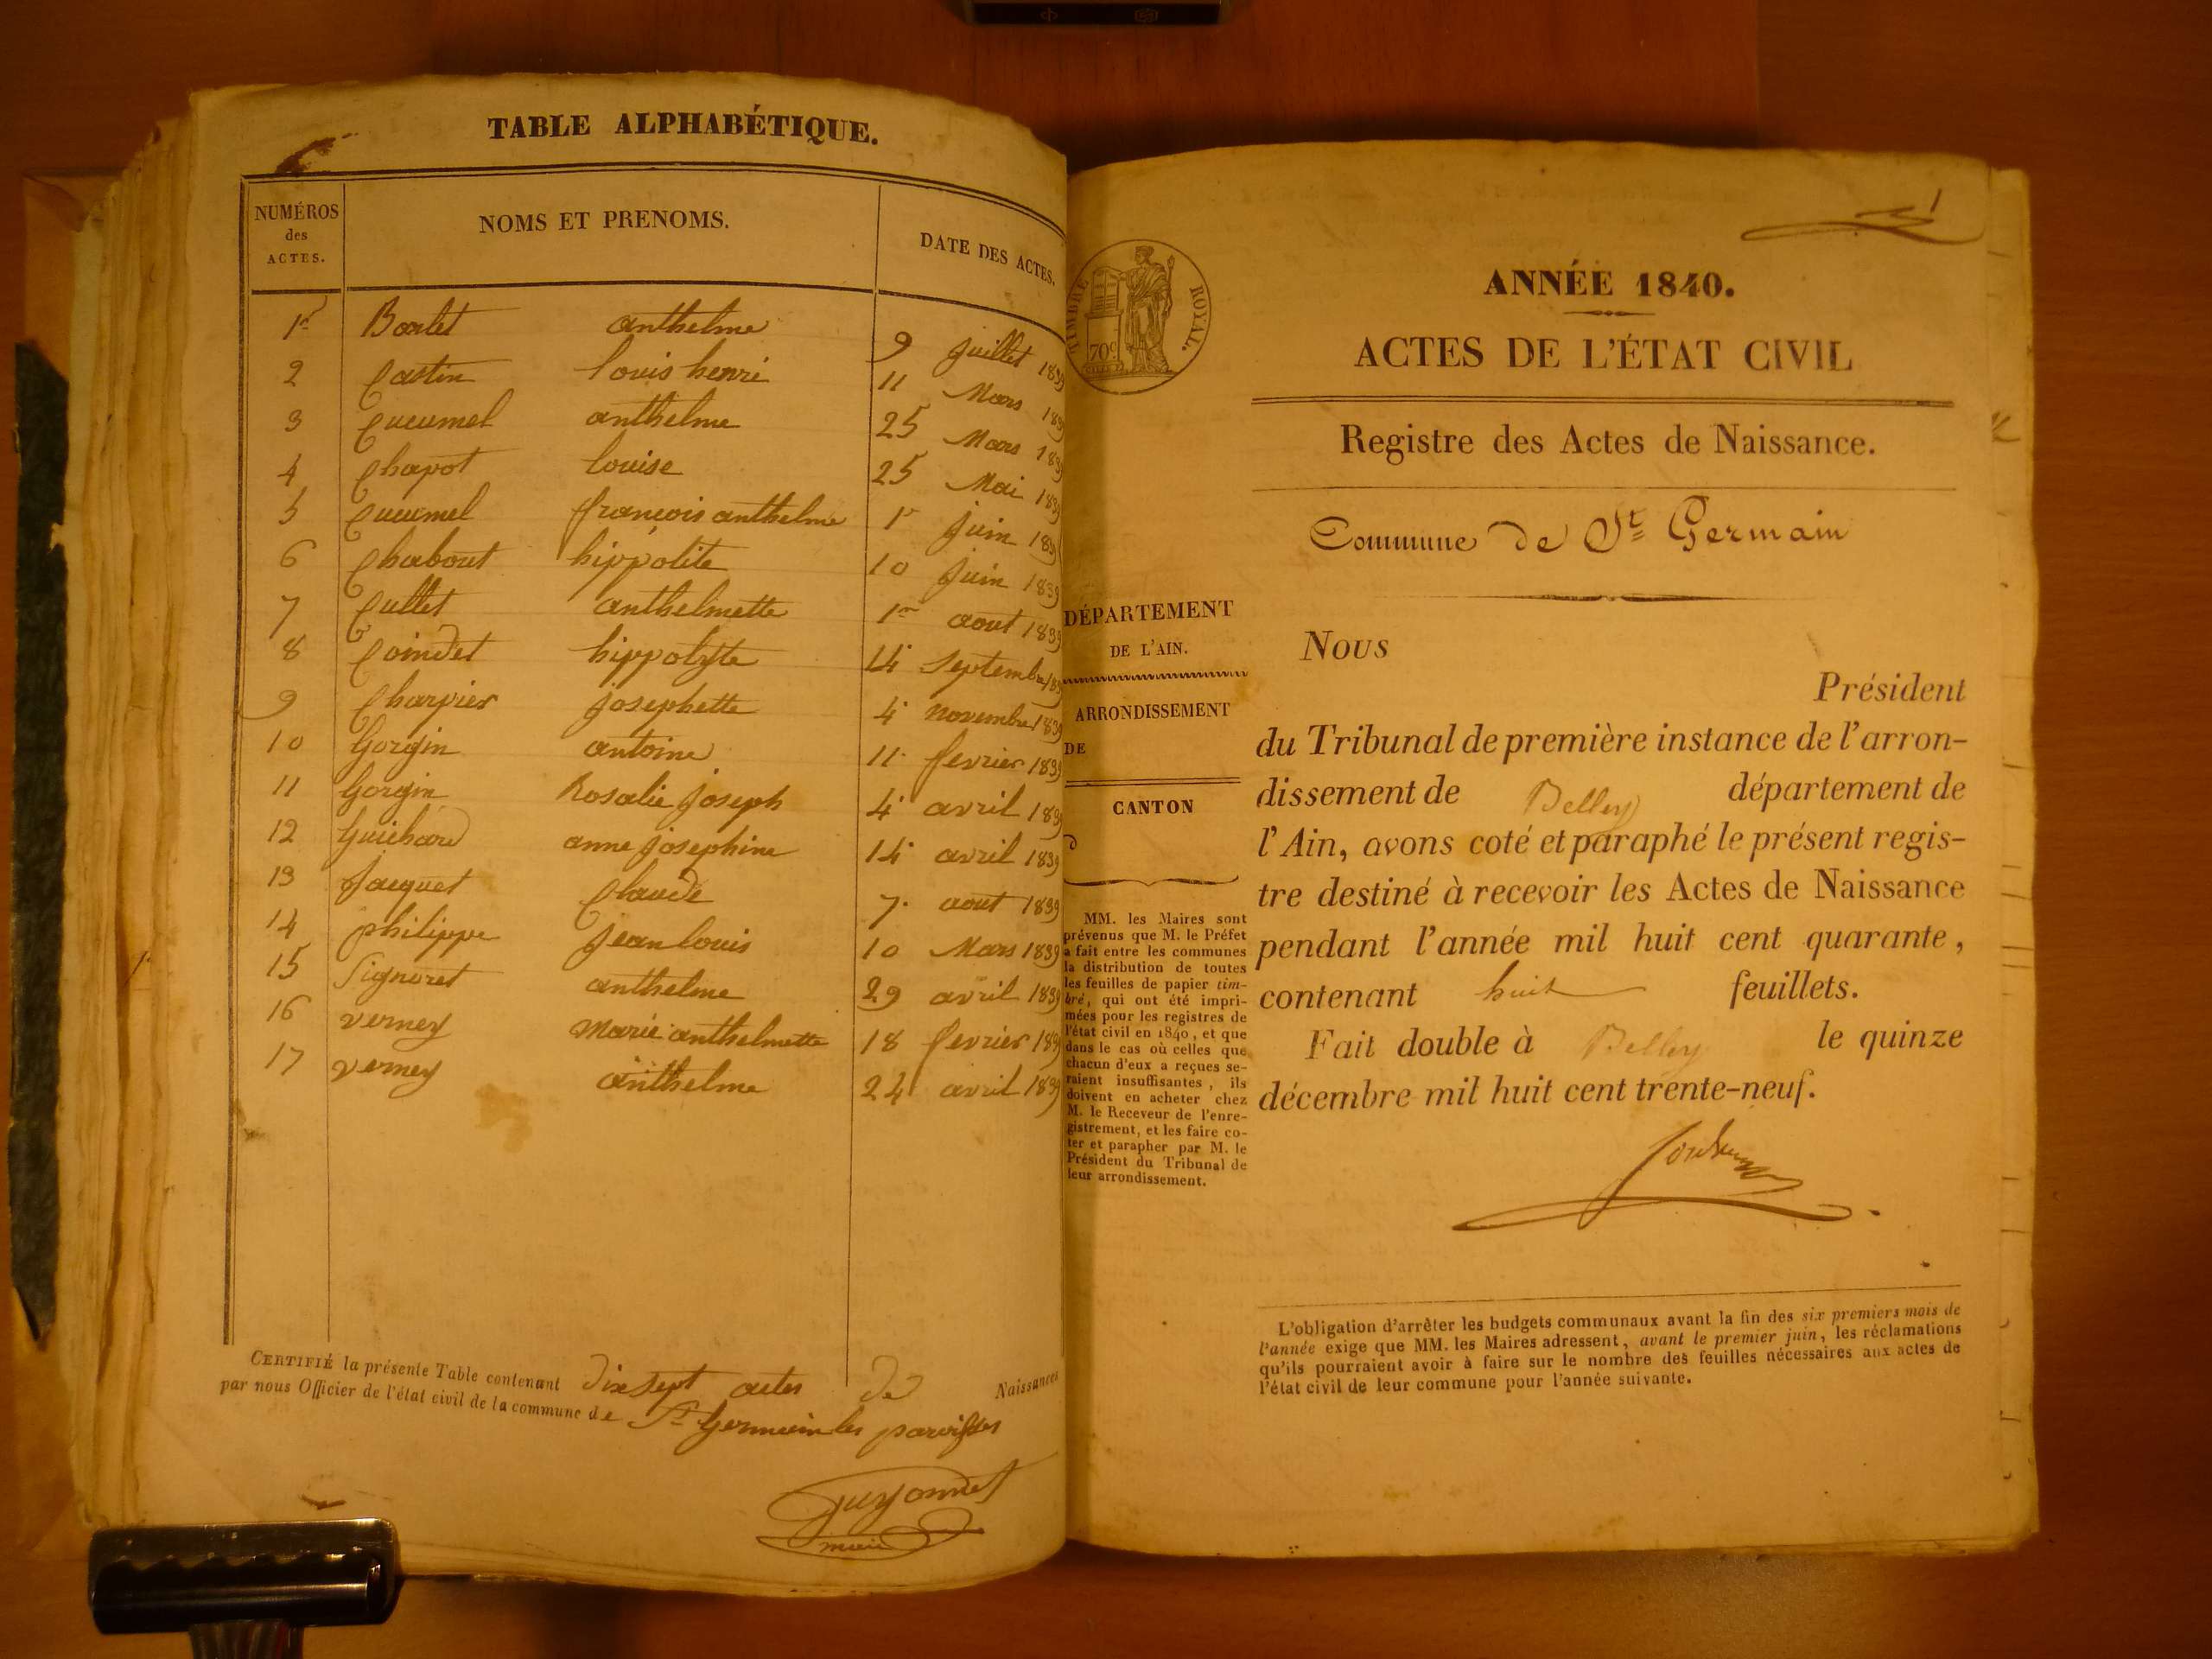 TABLE ALPHABÉTIQUE.
NUMÉROS
des
ACTES.
NOMS ET PRENOMS.
DATE DES ACTES.
1r Barlet anthelme 9 juillet 1839
2 Castin louis henri 11 Mars 1839
3 Cucumel anthelme 25 Mars 1839
4 Chapot louise 25 Mai 1839
5 Cucumel françois anthelme 1r juin 1839
6 Chabout hippolite 10 juin 1839
7 Cullet anthelmette 1er aout 1839
8 Coindet hippolyte 14 septembre 1839
9 Charvier josephette 4 novembre 1839
10 Gorgin antoine 11 fevrier 1839
11 Gorgin Rosalie joseph 4 avril 1839
12 Guichard anne josephine 14 avril 1839
13 Jacquet Claude 7 aout 1839
14 philippe jean louis 10 Mars 1839
15 Signoret anthelme 29 avril 1839
16 verney Marie anthelmette 18 fevrier 1839
17 verney anthelme 24 avril 1839
CERTIFIÉ la présente Table contenant dix sept actes de Naissances
par nous Officier de l'état civil de la commune de St Germain les paroisses
Guyonnet
maire
1
TIMBRE ROYAL.
70c
ANNÉE 1840.
ACTES DE L'ÉTAT CIVIL
Registre des Actes de Naissance.
Commune de St Germain
DÉPARTEMENT
DE L'AIN.
ARRONDISSEMENT
DE
CANTON
d
MM. les Maires sont
prévenus que M. le Préfet
a fait entre les communes
la distribution de toutes
les feuilles de papier tim-
bré, qui ont été impri-
mées pour les registres de
l'état civil en 1840, et que
dans le cas où celles que
chacun d'eux a reçues se-
raient insuffisantes, ils
doivent en acheter chez
M. le Receveur de l'enre-
gistrement, et les faire co-
ter et parapher par M. le
Président du Tribunal de
leur arrondissement.
Nous
Président
du Tribunal de première instance de l'arron-
dissement de Belley département de
l'Ain, avons coté et paraphé le présent regis-
tre destiné à recevoir les Actes de Naissance
pendant l'année mil huit cent quarante,
contenant huit feuillets.
Fait double à Belley le quinze
décembre mil huit cent trente-neuf.
L'obligation d'arrêter les budgets communaux avant la fin des six premiers mois de
l'année exige que MM. les Maires adressent, avant le premier juin, les réclamations
qu'ils pourraient avoir à faire sur le nombre des feuilles nécessaires aux actes de
l'état civil de leur commune pour l'année suivante.